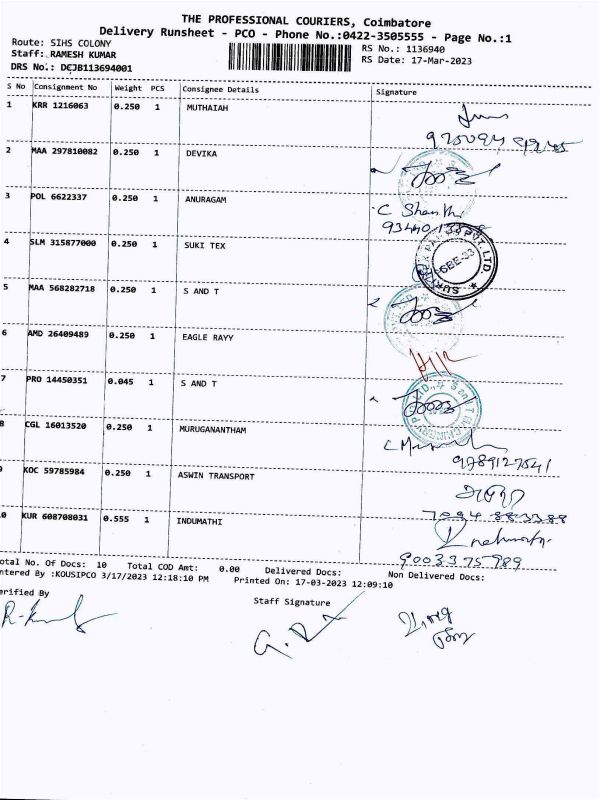 THE PROFESSIONAL COURIERS, Coimbatore
Delivery Runsheet - PCO - Phone No.:0422-3505555 - Page No.:1
Route: SIHS COLONY RS No.: 1136940
Staff: RAMESH KUMAR RS Date: 17-Mar-2023
DRS No.: DCJB113694001
S No Consignment No Weight PCS Consignee Details Signature
1 KRR 1216063 0.250 1 MUTHAIAH
2 MAA 297810082 0.250 1 DEVIKA
3 POL 6622337 0.250 1 ANURAGAM
C Shanthi
4 SLM 315877000 0.250 1 SUKI TEX
5 MAA 568282718 0.250 1 S AND T
6 AMD 26409489 0.250 1 EAGLE RAYY
7 PRO 14450351 0.045 1 S AND T
8 CGL 16013520 0.250 1 MURUGANANTHAM
9789127541
9 KOC 59785984 0.250 1 ASWIN TRANSPORT
0 KUR 608708031 0.555 1 INDUMATHI
9003375989
otal No. Of Docs: 10 Total COD Amt: 0.00 Delivered Docs: Non Delivered Docs:
ntered By :KOUSIPCO 3/17/2023 12:18:10 PM Printed On: 17-03-2023 12:09:10
erified By Staff Signature